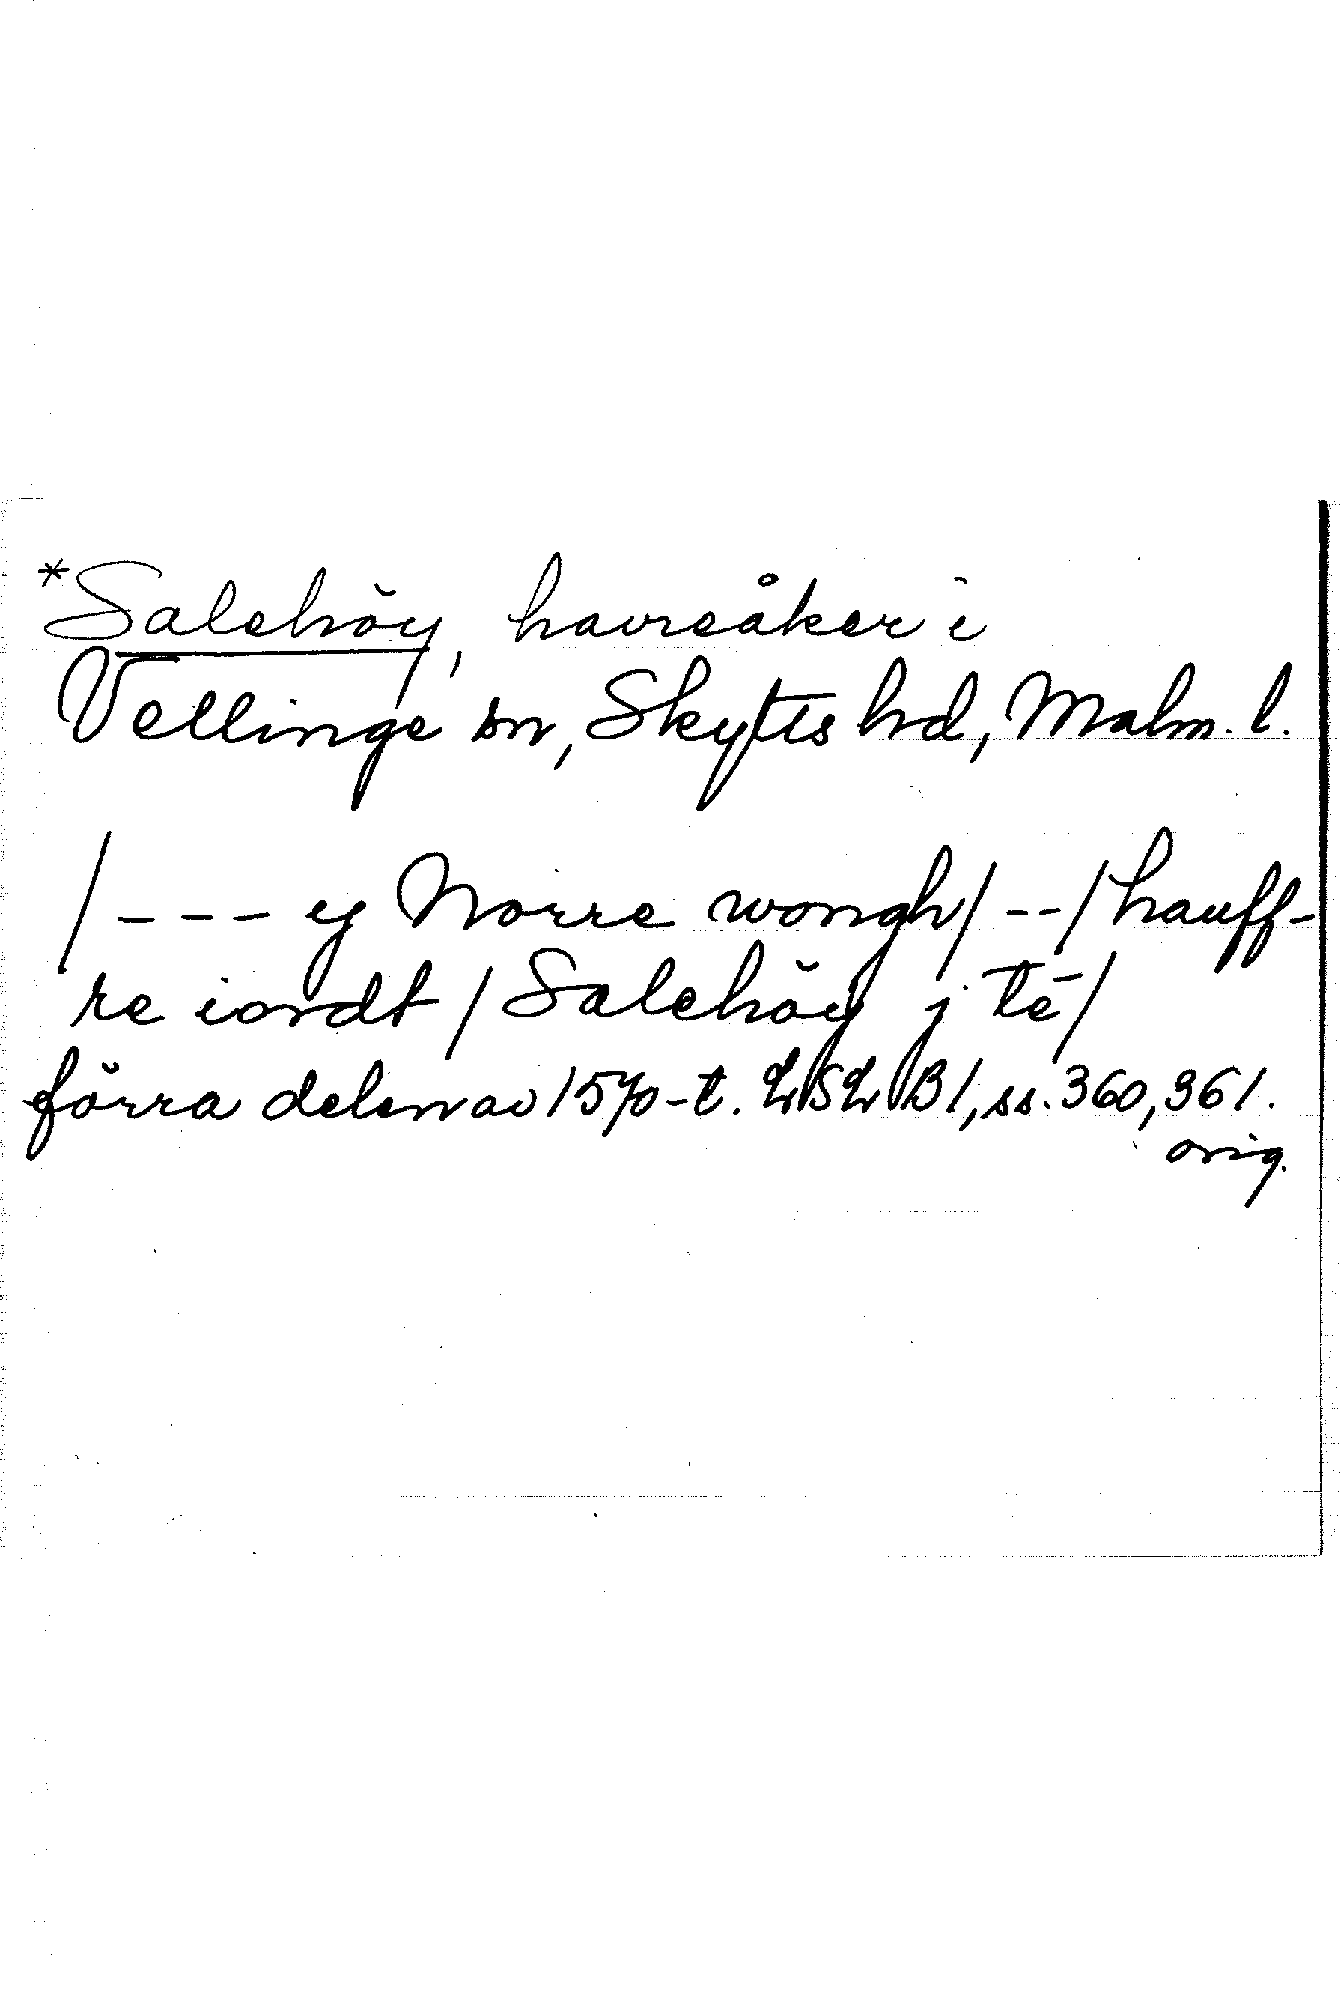 *Salehöy, havreåker i
Vellinge sn, Skytts hd, Malm. l.
/--- ey Norre wongh/--/hauff-
re iordt / Salehöy j té/
förra delen av 1570-t. LSL B1, ss. 360, 361.
orig.